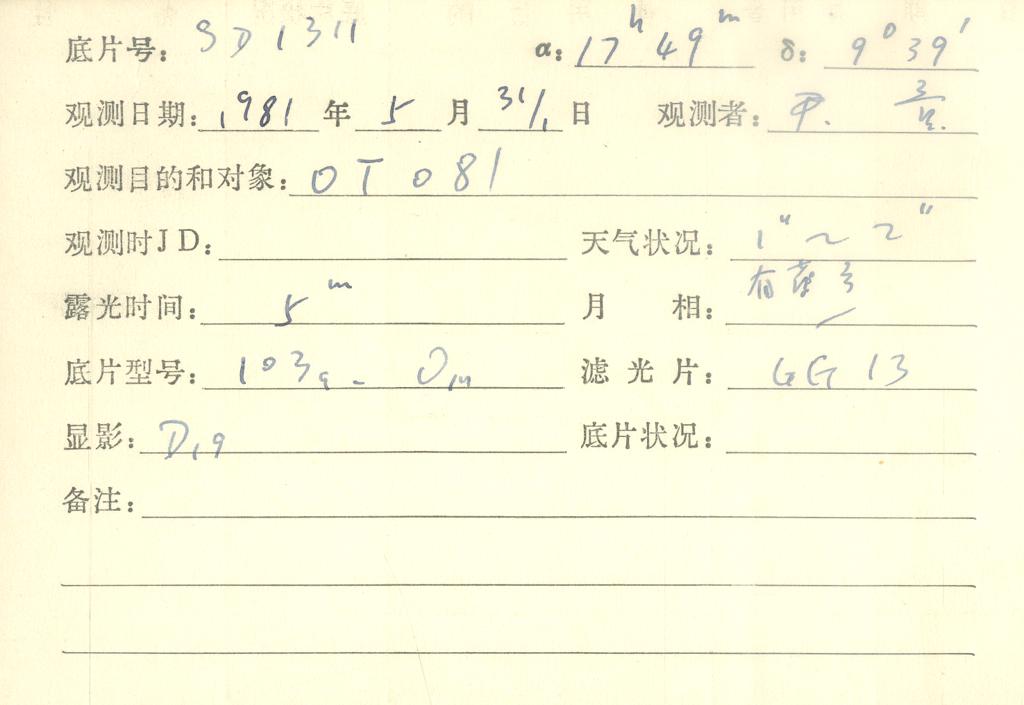 底片号: SD1311 α: 17ʰ 49ᵐ δ: 9° 39′
观测日期: 1981 年 5 月 31/1 日 观测者:
观测目的和对象: OT 081
观测时JD: 天气状况: 1″~2″
露光时间: 5ᵐ 月 相: 有薄云
底片型号: 103a-O 滤光片: GG 13
显影: D19 底片状况:
备注: